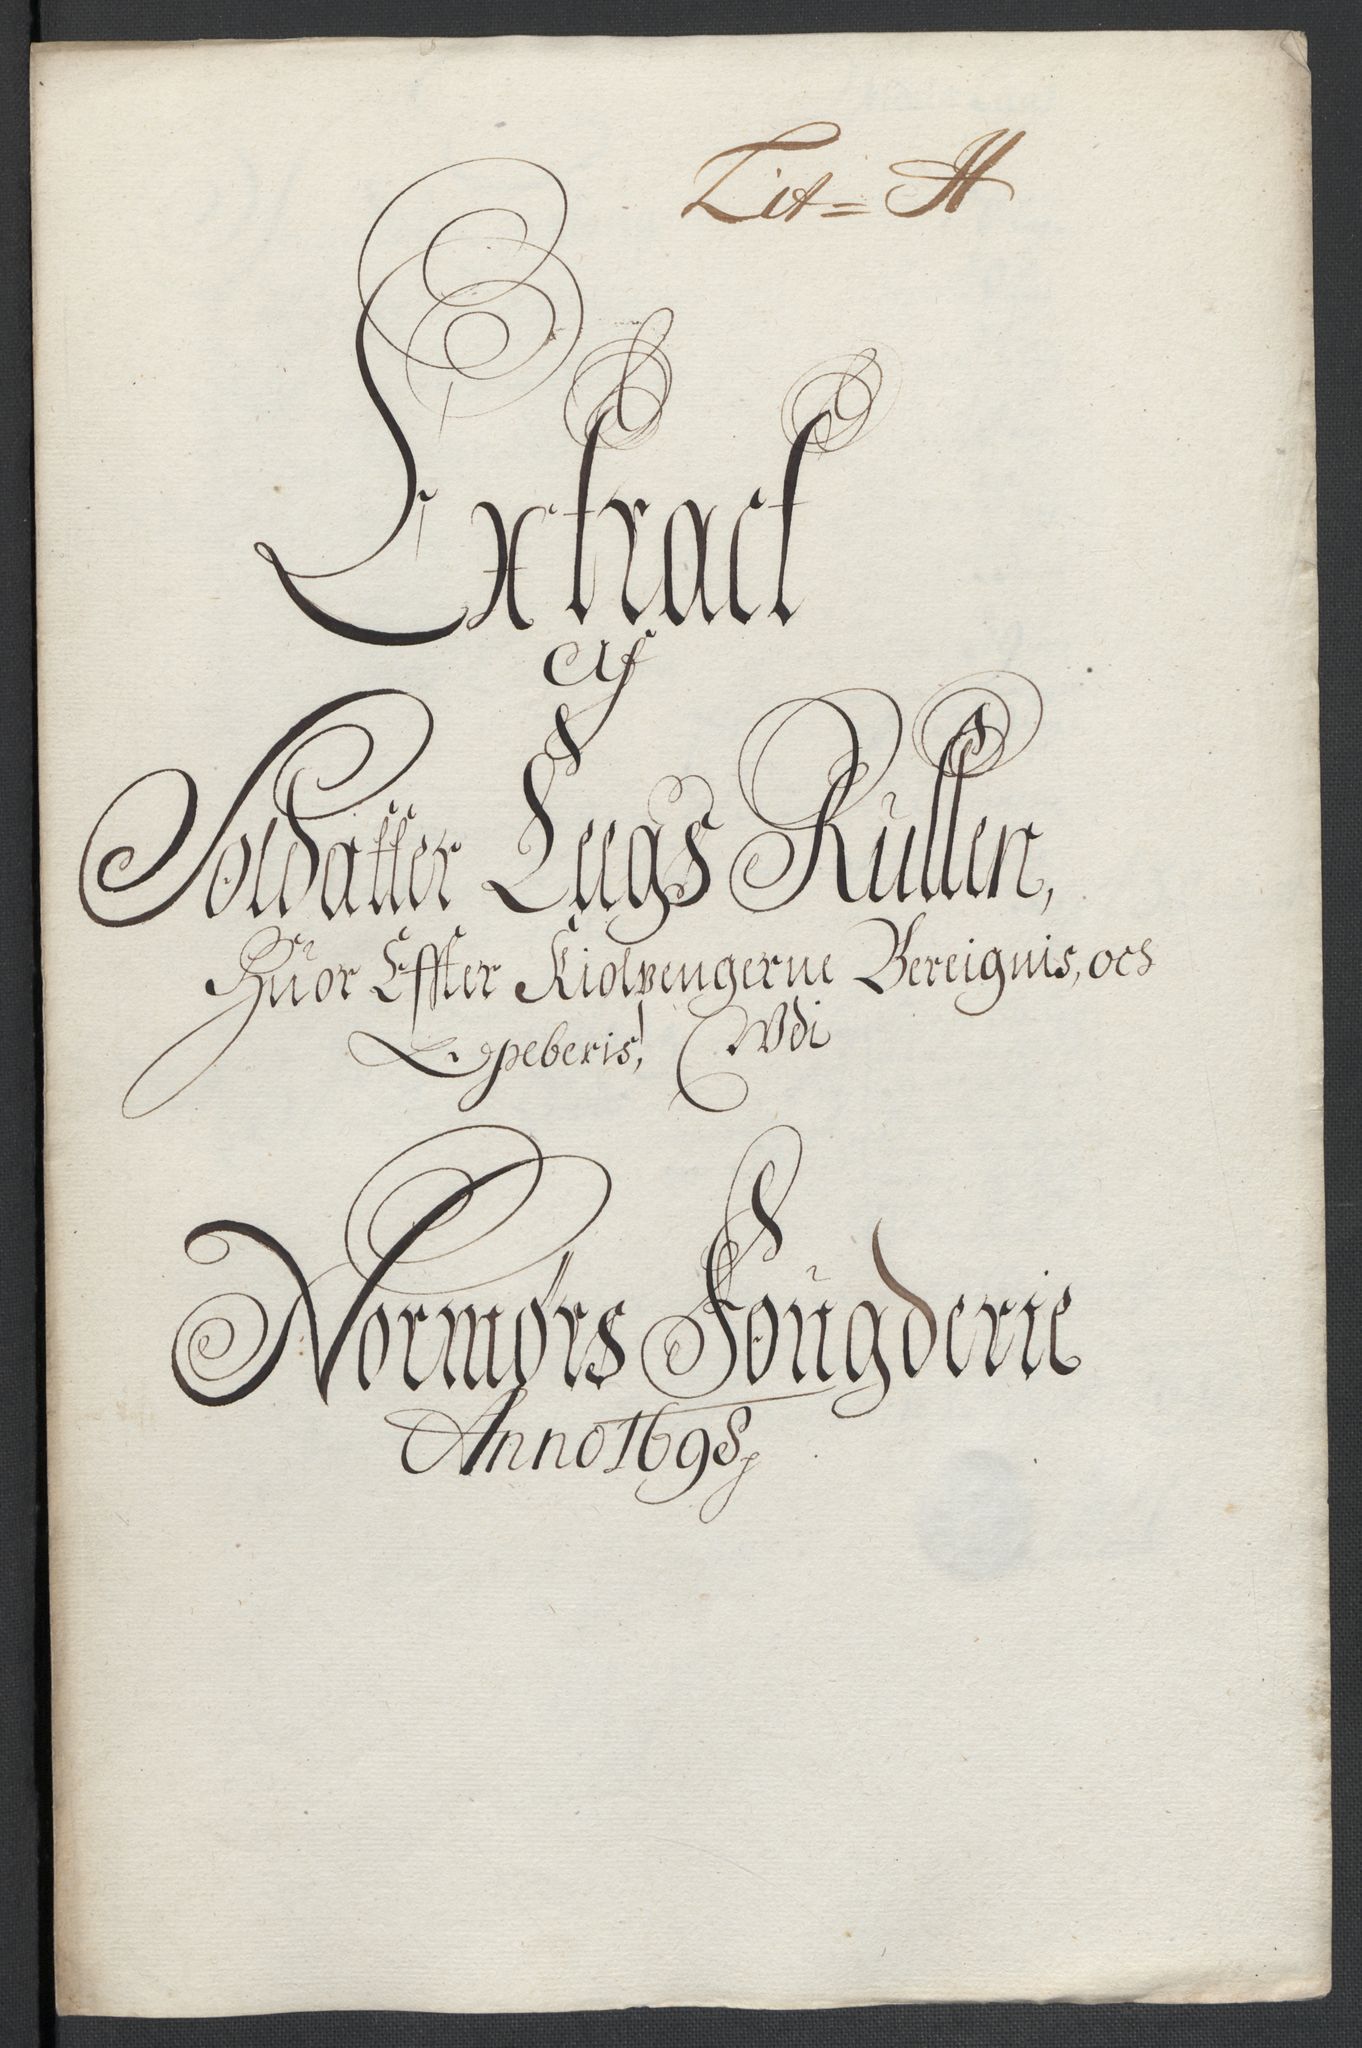 Lit= H
Extract
af
Soldatter Legs Rullen,
Huor Effter Kiolpengerne Bereignis, och
Opeberis, Udi
Normørs Fougderie
Anno 1698